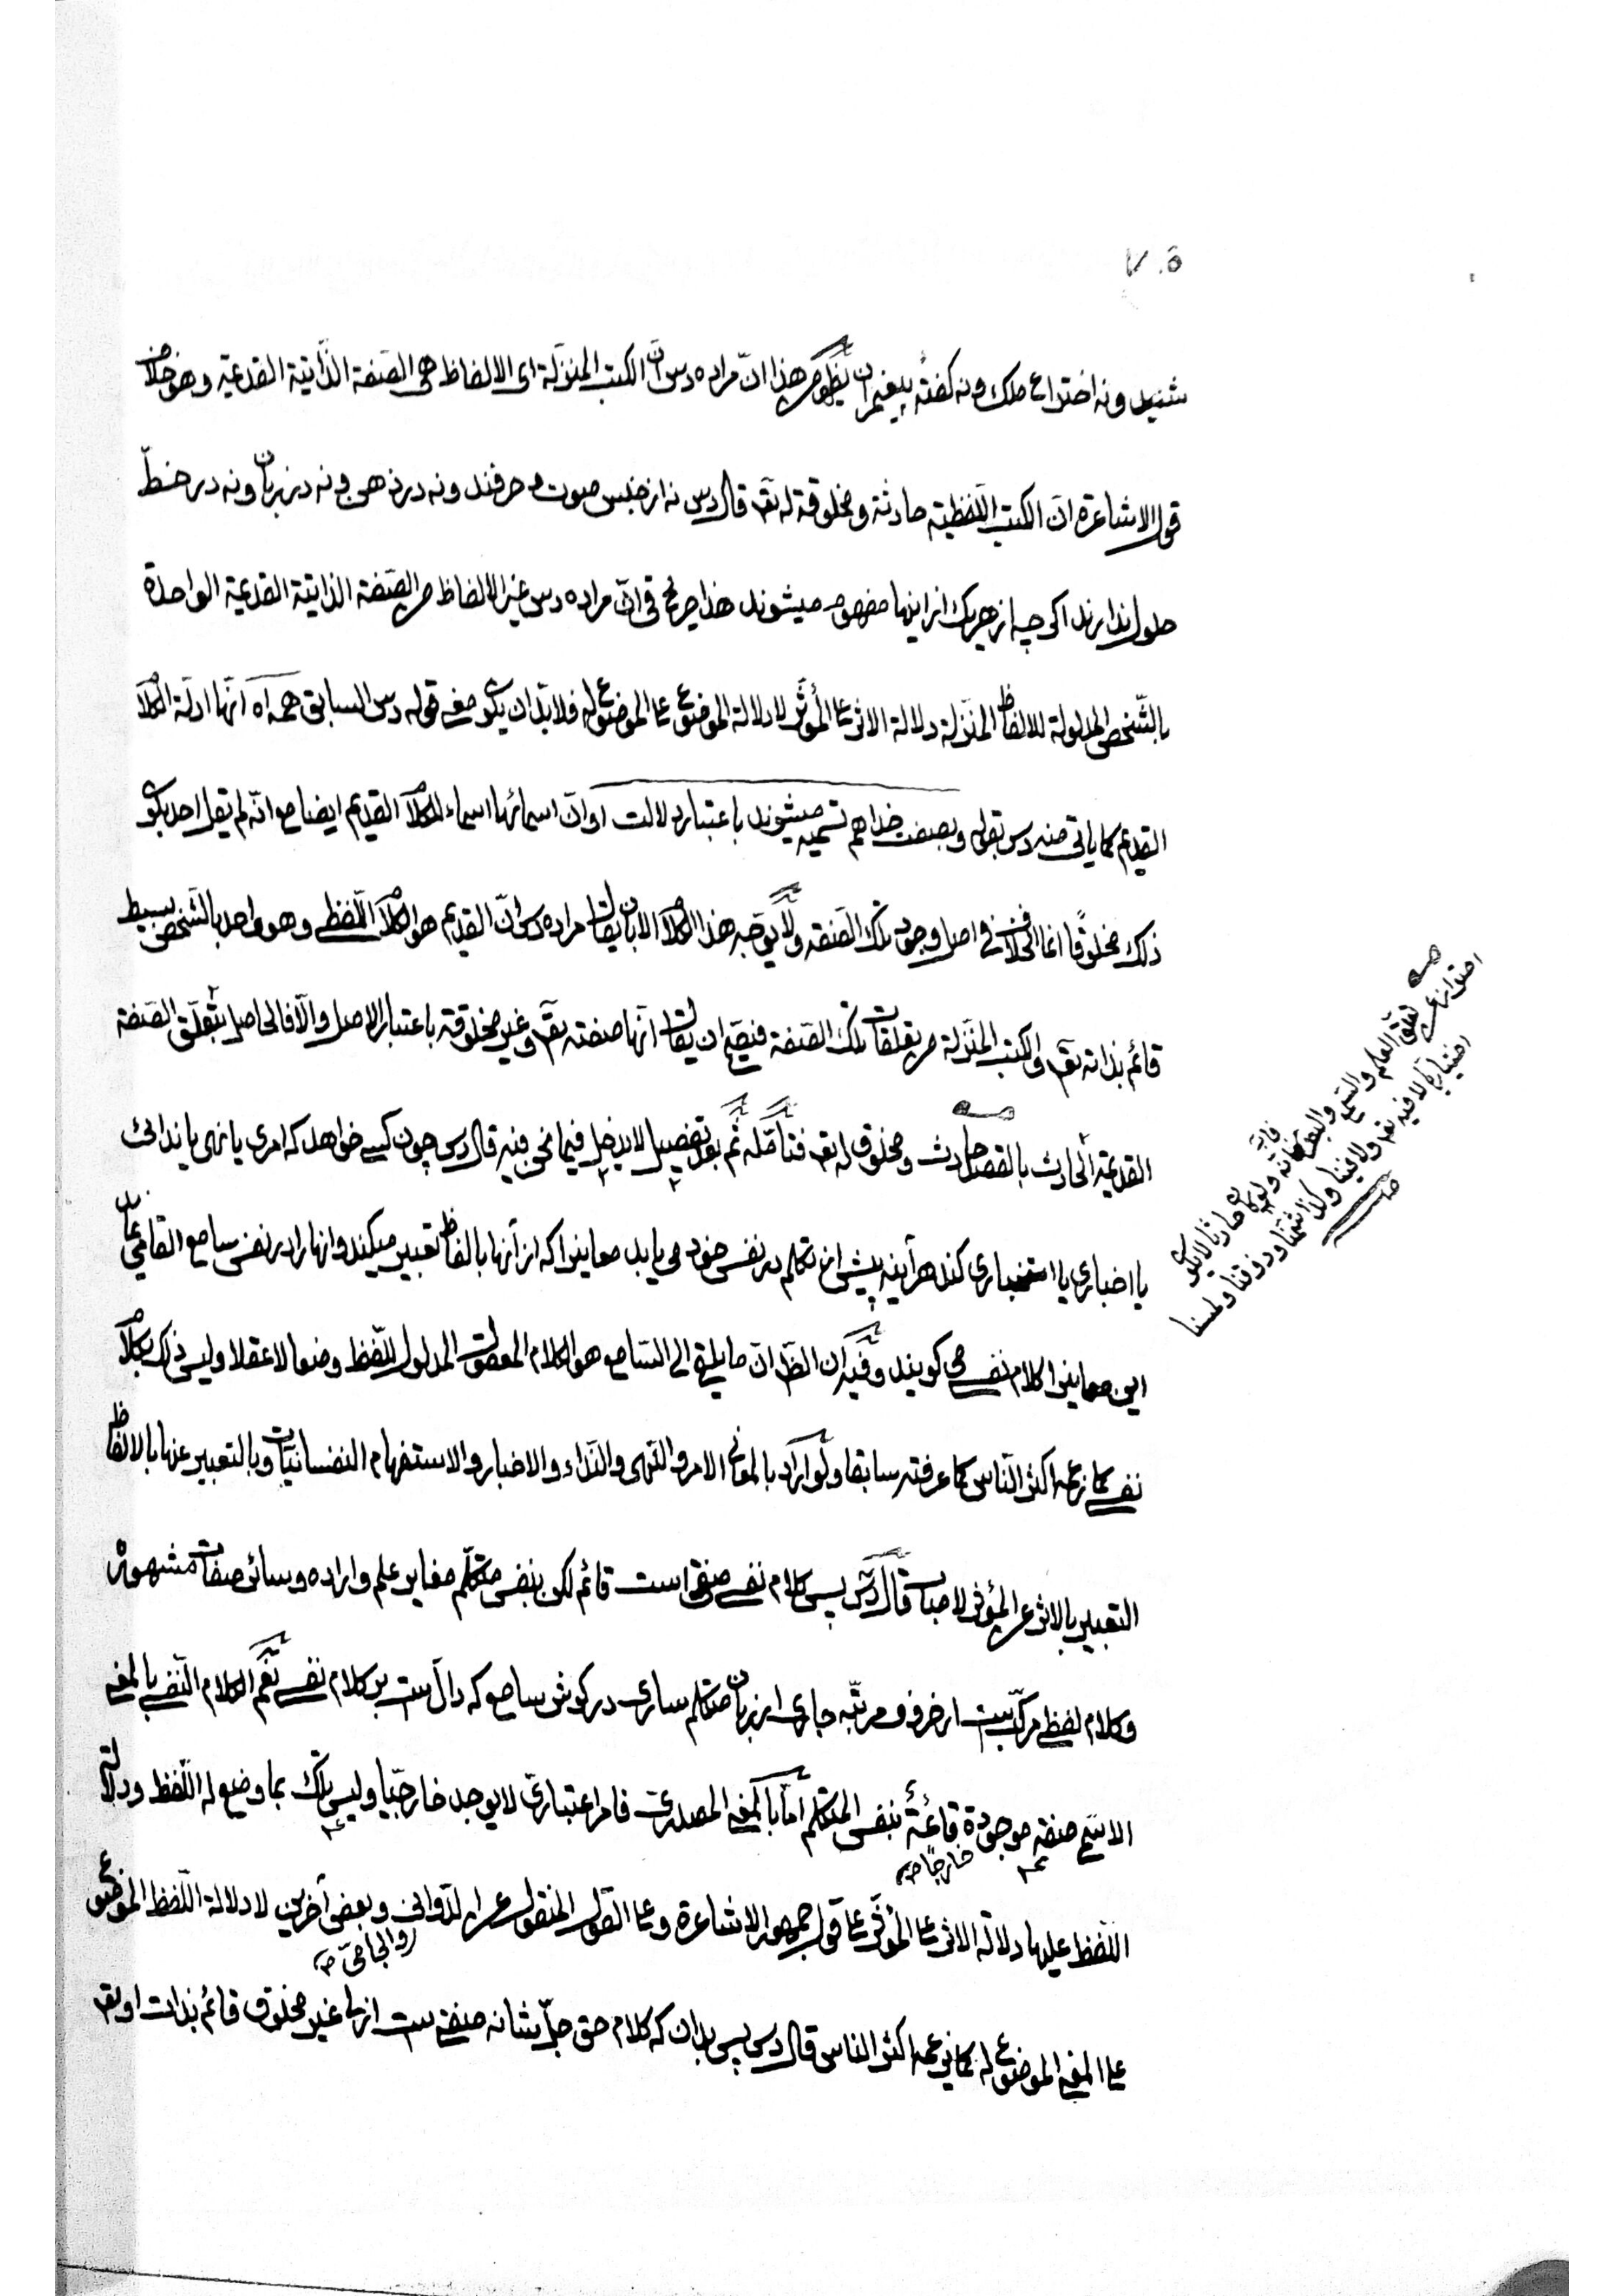 ٧٠٥
شنيد ونه اختراع ملك ونه كفتۀ پيغمبران يظهر من هذا ان مراده دس ان الكتب المنزلة اى الالفاظ هى الصفة الذاتية القديمة وهو خلاف
قول الاشاعرة ان الكتب اللفظية حادثة ومخلوقة له تعـ قال دس نه از جنس صوت و حرفند ونه در ذهن ونه در زبان ونه در خط
حلول ندارند اكرچه از هريك از اينها مفهوم ميشوند هذا صريح فى ان مراده دس غير الالفاظ من الصفة الذاتية القديمة الواحدة
بالشخص المدلولة للالفاظ المنزلة دلالة الاثر عا المؤثر لا دلالة الموضوع عا الموضوع له فلا بد ان يكون معنى قوله دس السابق همه اه انها ادلة الكلام
القديم كما ياتى منه دس بقوله وبصفت خدا هم تسميه ميشوند باعتبار دلالت او ان اسمائها اسماء للكلام القديم ايضا مع انه لم يقل احد بكون
ذلك مخلوقًا انما الخلاف فى اصل وجود تلك الصفة ولا يوجه هذا الكلام الا بان يقال مراده دس ان القديم هو الكلام اللفظى وهو واحد بالشخص بسيط
قائم بذاته تعـ والكتب المنزلة من تعلقات تلك الصفة فيصح ان يقال انها صفته تعـ وغير مخلوقة باعتبار الاصل والا فالحاصل بتعلق الصفة
القديمة الحادث بالقصد حادث ومخلوق له تعـ فتامله ثم بعد تفصيل لا يدخل فيما نحن فيه قال دس چون كسى خواهد كه امرى يا نهى يا ندائى
يا اخبارى يا استخبارى كند هرآينه پيش از تكلم در نفس خود مى يابد معاينرا كه از آنها بالفاظ تعبير ميكند وانها را در نفس سامع القا مى
اين معاينرا كلام نفسى مى كويند وفيه ان الظ ان ما يلقى الى السامع هو الكلام المعقول المدلول للفظ وضعا لا عقلا وليس ذلك بكلام
نفسى كما زعمه اكثر الناس كما عرفته سابقا ولو اراد بالمعانى الامر والنهى والنداء والاخبار والاستفهام النفسانيات وبالتعبير عنها بالالفاظ
التعبير بالاثر عن المؤثر قال دس پس كلام نفسى صفتى است قائم بنفس متكلم مغاير علم واراده وسائر صفات مشهوره
وكلام لفظى مركبست از حروف مرتبه جارى از زبان متكلم سارى در كوش سامع كه دالست بر كلام نفسى نعم الكلام النفسى بالمعنى
الاسمى صفة موجودة قائمة بنفس المتكلم اما بالمعنى المصدرى فامر اعتبارى لا يوجد خارجيا وليس تلك بما وضع له اللفظ ودلالة
خارجًا صح
اللفظ عليها دلالة الاثر عا المؤثر عا قول جمهور الاشاعرة وعا القول المنقول عن الدوانى وبعض آخرين لا دلالة اللفظ الموضوع
والجامى صح
عا المعنى الموضوع له كما زعمه اكثر الناس قال دس پس بدان كه كلام حق جل شانه صفتى ست ازلى غير مخلوق قائم بذات او تعـ
تعلق العلم والسمع والبصر فانه وان كان حادثا لا يكون
اختياريا لا فيه تعـ ولا فينا وكذا شمنا وذوقنا ولمسنا